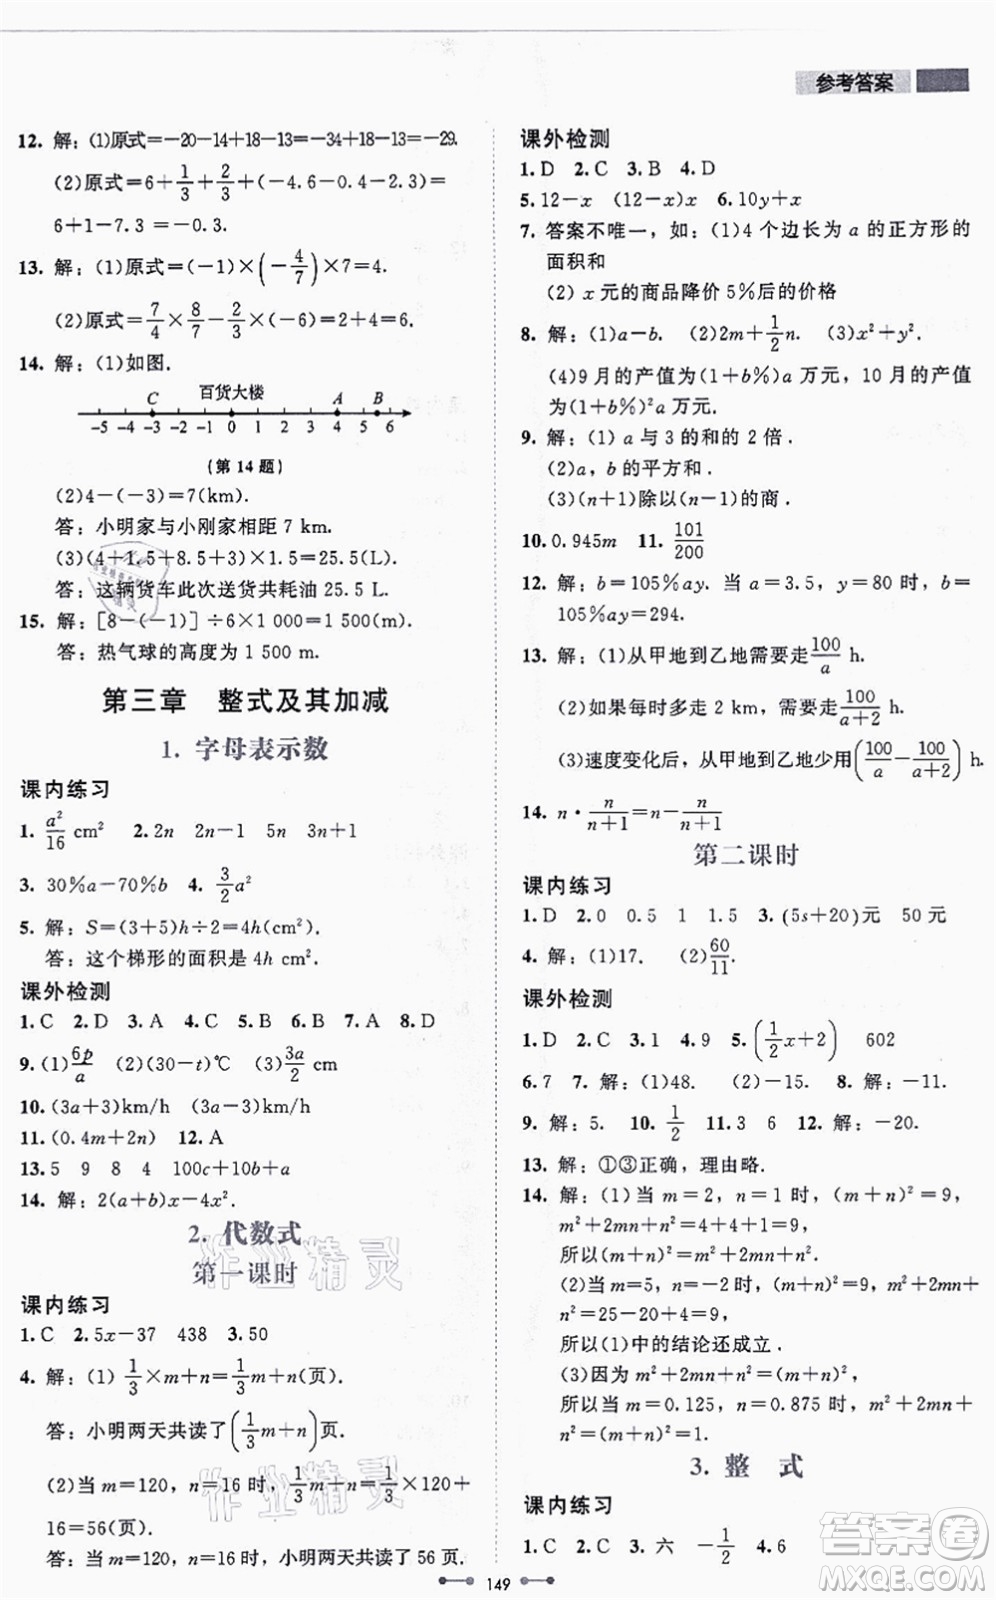 参考答案
12. 解：(1)原式=-20-14+18-13=-34+18-13=-29.
(2)原式=6+1/3+2/3+(-4.6-0.4-2.3)=
6+1-7.3=-0.3.
13. 解：(1)原式=(-1)×(-4/7)×7=4.
(2)原式=7/4×8/7-2/3×(-6)=2+4=6.
14. 解：(1)如图.
C 百货大楼 A B
-5 -4 -3 -2 -1 0 1 2 3 4 5 6
(第 14 题)
(2)4-(-3)=7(km).
答：小明家与小刚家相距 7 km.
(3)(4+1.5+8.5+3)×1.5=25.5(L).
答：这辆货车此次送货共耗油 25.5 L.
15. 解：[8-(-1)]÷6×1 000=1 500(m).
答：热气球的高度为 1 500 m.
第三章 整式及其加减
1. 字母表示数
课内练习
1. a²/16 cm² 2. 2n 2n-1 5n 3n+1
3. 30%a-70%b 4. 3/2 a²
5. 解：S=(3+5)h÷2=4h(cm²).
答：这个梯形的面积是 4h cm².
课外检测
1. C 2. D 3. A 4. C 5. B 6. B 7. A 8. D
9. (1)6p/a (2)(30-t)℃ (3)3a/2 cm
10. (3a+3)km/h (3a-3)km/h
11. (0.4m+2n) 12. A
13. 5 9 8 4 100c+10b+a
14. 解：2(a+b)x-4x².
2. 代数式
第一课时
课内练习
1. C 2. 5x-37 438 3. 50
4. 解：(1) 1/3×m+n=1/3 m+n(页).
答：小明两天共读了(1/3 m+n)页.
(2)当 m=120，n=16 时，1/3 m+n=1/3×120+
16=56(页).
答：当 m=120，n=16 时，小明两天共读了 56 页.
课外检测
1. D 2. C 3. B 4. D
5. 12-x (12-x)x 6. 10y+x
7. 答案不唯一，如：(1)4 个边长为 a 的正方形的
面积和
(2) x 元的商品降价 5%后的价格
8. 解：(1)a-b. (2)2m+1/2 n. (3)x²+y².
(4)9 月的产值为(1+b%)a 万元，10 月的产值
为(1+b%)²a 万元.
9. 解：(1) a 与 3 的和的 2 倍.
(2)a，b 的平方和.
(3)(n+1)除以(n-1)的商.
10. 0.945m 11. 101/200
12. 解：b=105%ay. 当 a=3.5，y=80 时，b=
105%ay=294.
13. 解：(1)从甲地到乙地需要走100/a h.
(2)如果每时多走 2 km，需要走100/(a+2) h.
(3)速度变化后，从甲地到乙地少用(100/a-100/(a+2)) h.
14. n·n/(n+1)=n-n/(n+1)
第二课时
课内练习
1. D 2. 0 0.5 1 1.5 3. (5s+20)元 50 元
4. 解：(1)17. (2)60/11.
课外检测
1. D 2. C 3. 1 4. 9 5. (1/2 x+2) 602
6. 7 7. 解：(1)48. (2)-15. 8. 解：-11.
9. 解：5. 10. 1/2 11. 3 6 12. 解：-20.
13. 解：①③正确，理由略.
14. 解：(1)当 m=2，n=1 时，(m+n)²=9，
m²+2mn+n²=4+4+1=9，
所以(m+n)²=m²+2mn+n².
(2)当 m=5，n=-2 时，(m+n)²=9，m²+2mn
+n²=25-20+4=9，
所以(1)中的结论还成立.
(3)因为 m²+2mn+n²=(m+n)²，
所以当 m=0.125，n=0.875 时，m²+2mn
+n²=(m+n)²=(0.125+0.875)²=1.
3. 整 式
课内练习
1. C 2. C 3. 六 -1/2 4. 6
149
作业精灵
作业精灵
答案圈
MXQE.COM